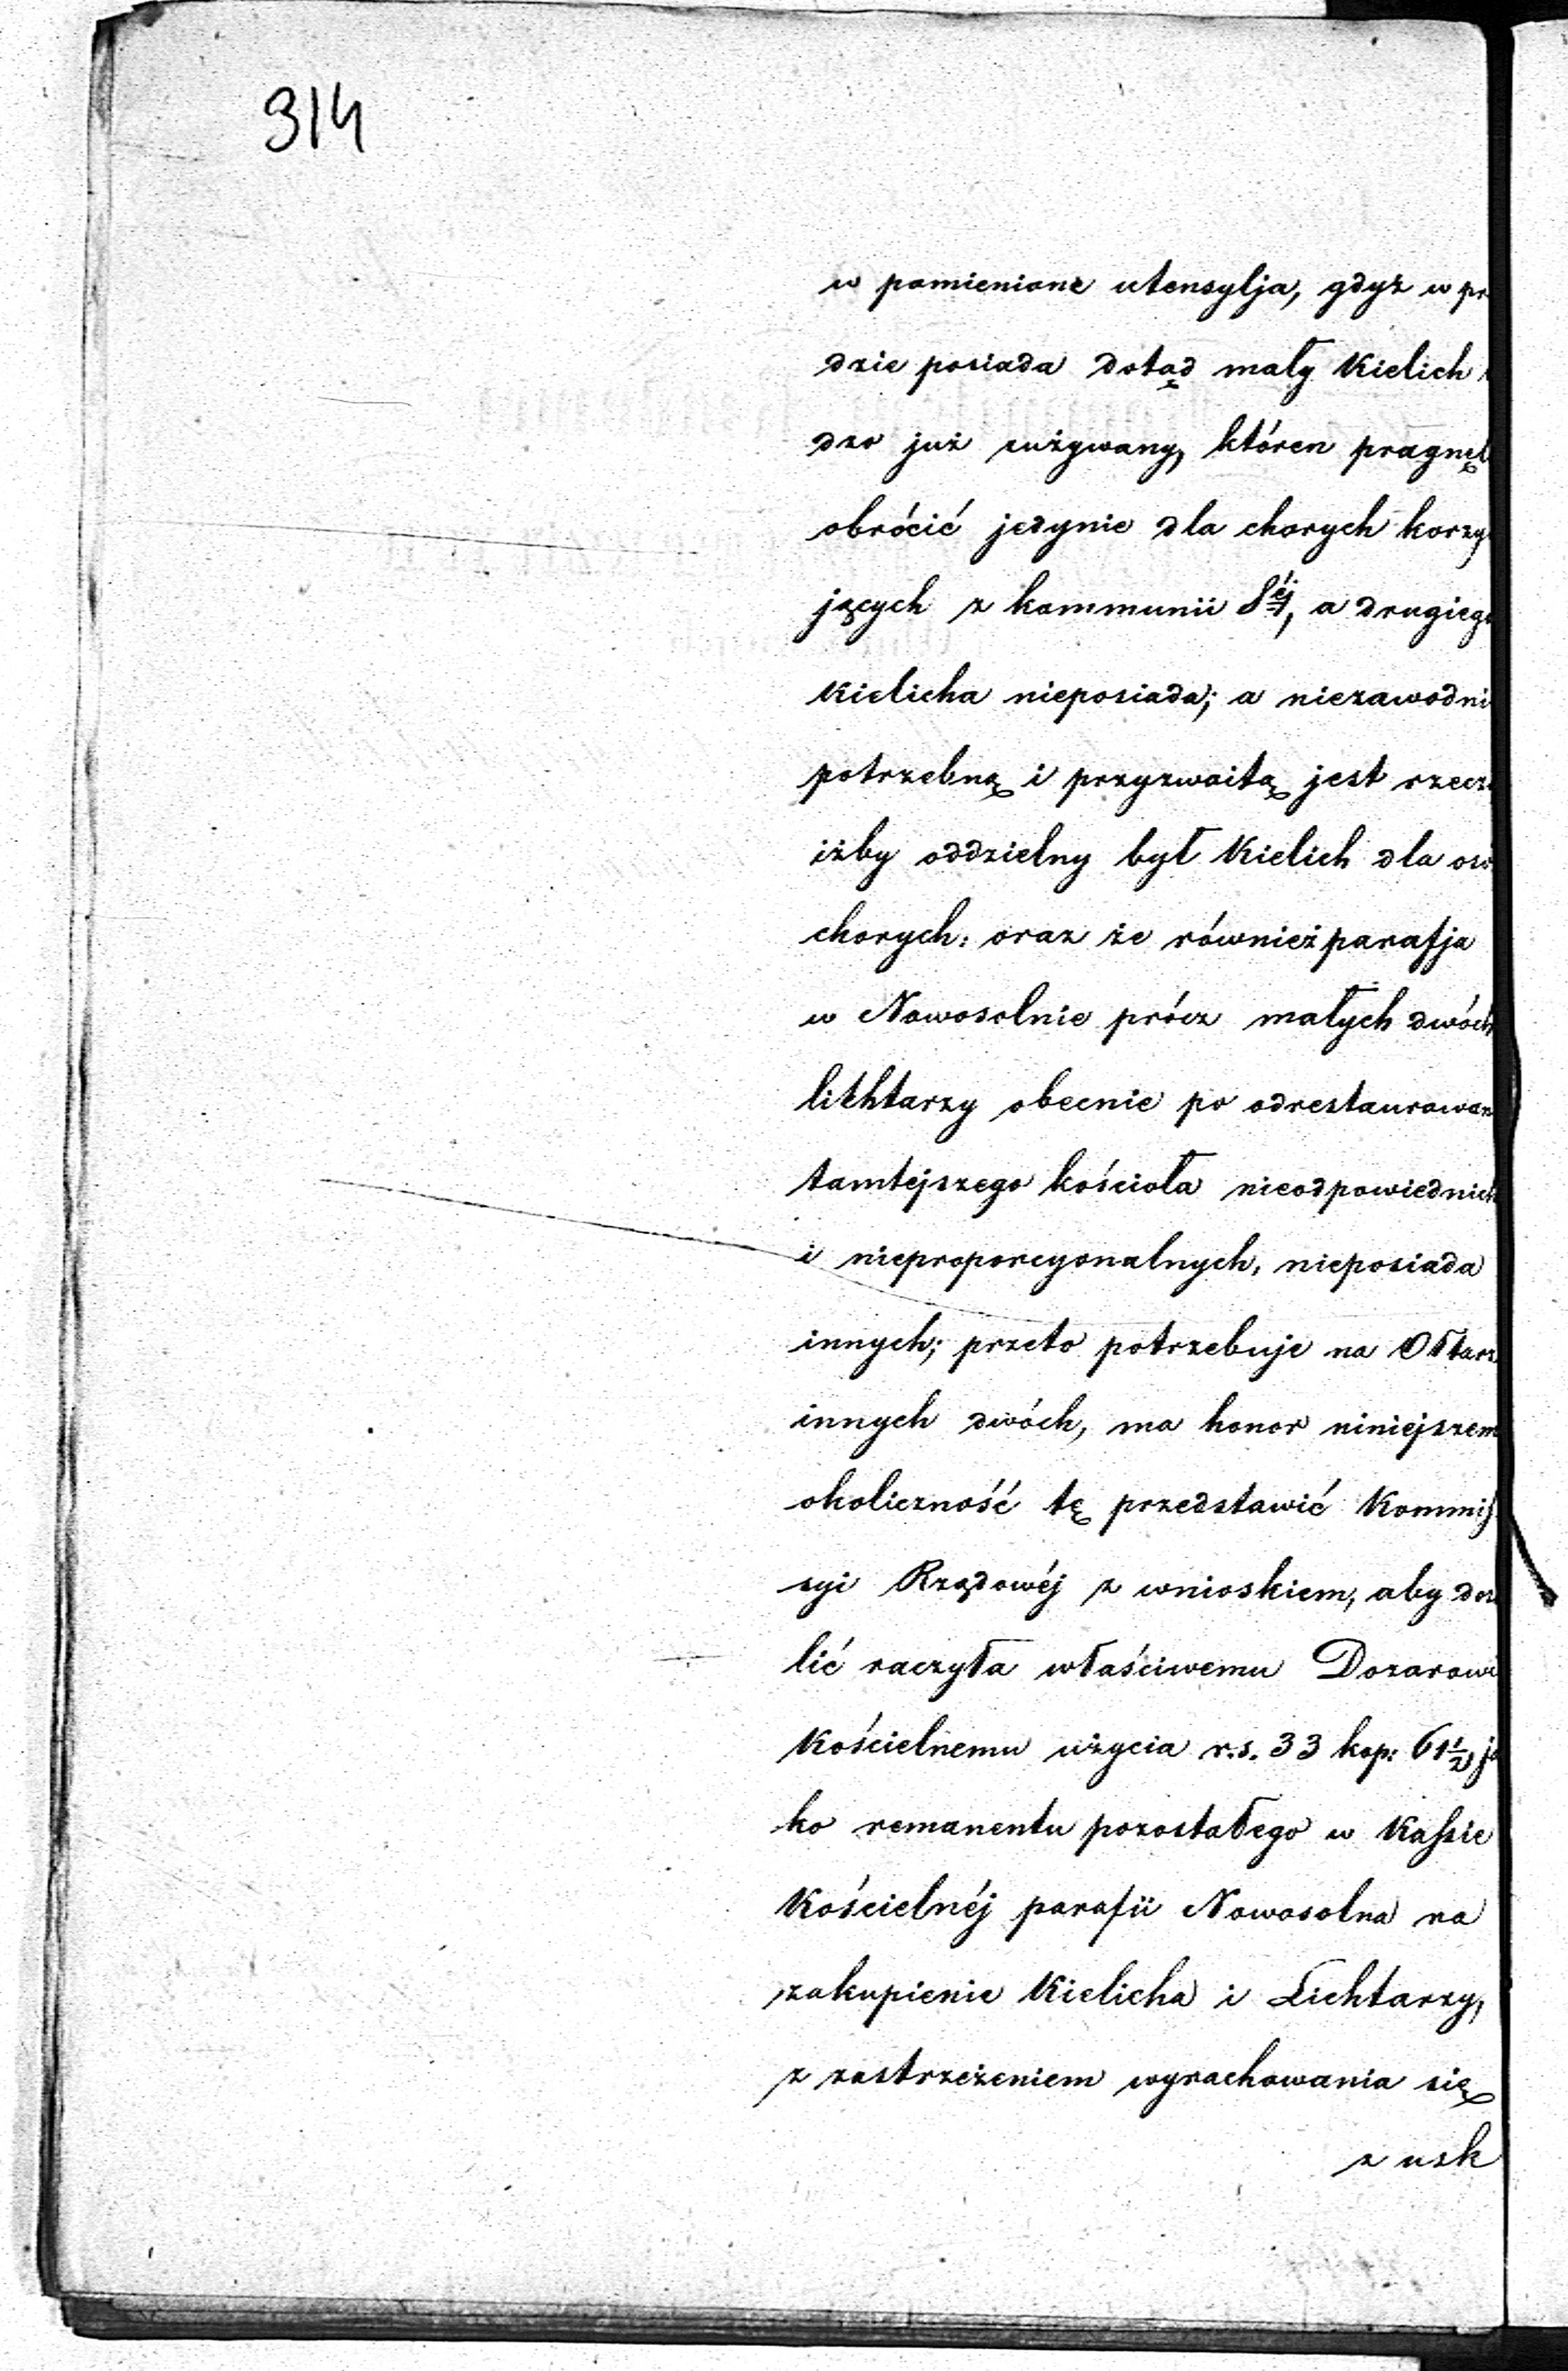 314
w pomienione utensylja, gdyż w pr
dzie posiada dotąd mały Kielich
dzo już zużywany, któren pragnęł
obrócić jedynie dla chorych korzy
jących z kommunii Śéj, a drugiego
Kielicha nieposiada; a niezawodni
potrzebną i przyzwoitą jest rzecz
iżby oddzielny był Kielich dla osó
chorych: oraz że również parafja
w Nowosolnie prócz małych dwóch
lichtarzy obecnie po odrestaurowan
tamtejszego kościoła nieodpowiednich
i nieproporcyonalnych, nieposiada
innych; przeto potrzebuje na Ołtarz
innych dwóch, ma honor niniejszem
okoliczność tę przedstawić Kommis
syi Rządowéj z wnioskiem, aby doz
lić raczyła właściwemu Dozorowi
Kościelnemu użycia r.s. 33 kop: 61½, ja
ko remanentu pozostałego w Kassie
Kościelnéj parafii Nowosolna na
zakupienie Kielicha i Lichtarzy,
z zastrzeżeniem wyrachowania się
z usk